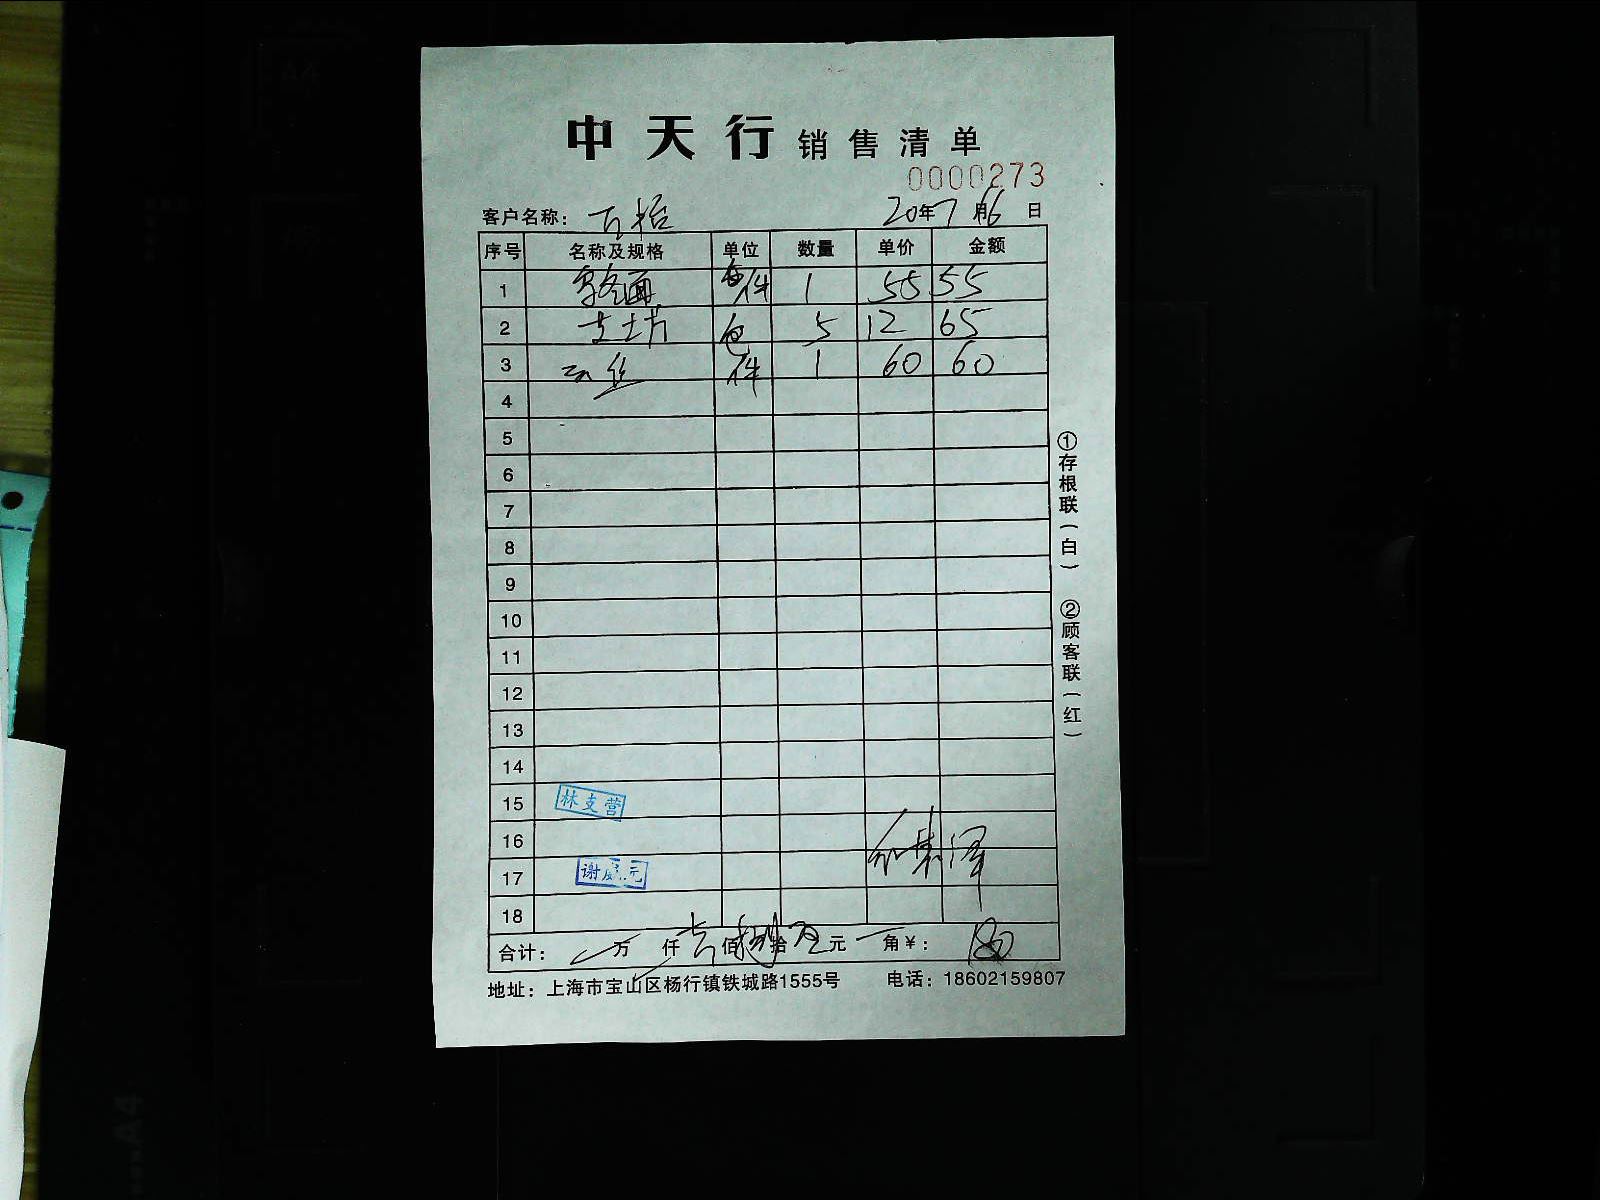 中天行 销售清单
0000273
客户名称： 20年7月16日
序号 名称及规格 单位 数量 单价 金额
1 件 1 55 55
2 包 5 12 65
3 件 1 60 60
4
5
6
7
8
9
10
11
12
13
14
15 林支营
16
17 谢 元
18
合计： 万 仟 壹 佰 捌 拾 元 角￥： 180
地址：上海市宝山区杨行镇铁城路1555号 电话：18602159807
①存根联（白） ②顾客联（红）
A4